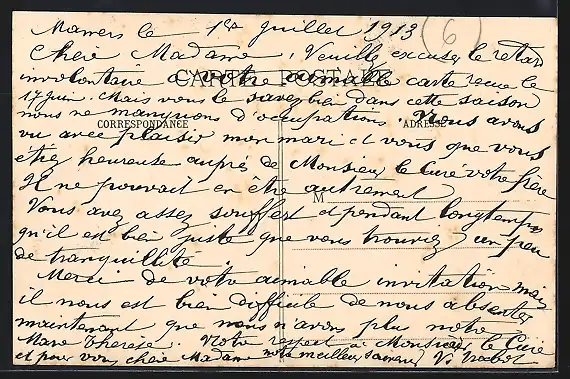 Mamers le 1er Juillet 1913
6
Chère Madame, Veuillez excuser le retard
involontaire a votre aimable carte recue le
CARTE POSTALE
17 juin. Mais vous le savez bien dans cette saison
nous ne manquons d'occupations. Nous avons
CORRESPONDANCE
ADRESSE
vu avec plaisir mon mari et vous que vous
étiez heureuse auprès de Monsieur le Curé votre frère
Il ne pouvait en être autrement
M
Vous avez assez souffert et pendant longtemps
qu'il est bien juste que vous trouviez un peu
de tranquillité.
Merci de votre aimable invitation mais
il nous est bien difficile de nous absenter
maintenant que nous n'avons plus notre
Marie Thérèse. Notre respect à Monsieur le Curé
et pour vous chère Madame notre meilleur souvenir V.